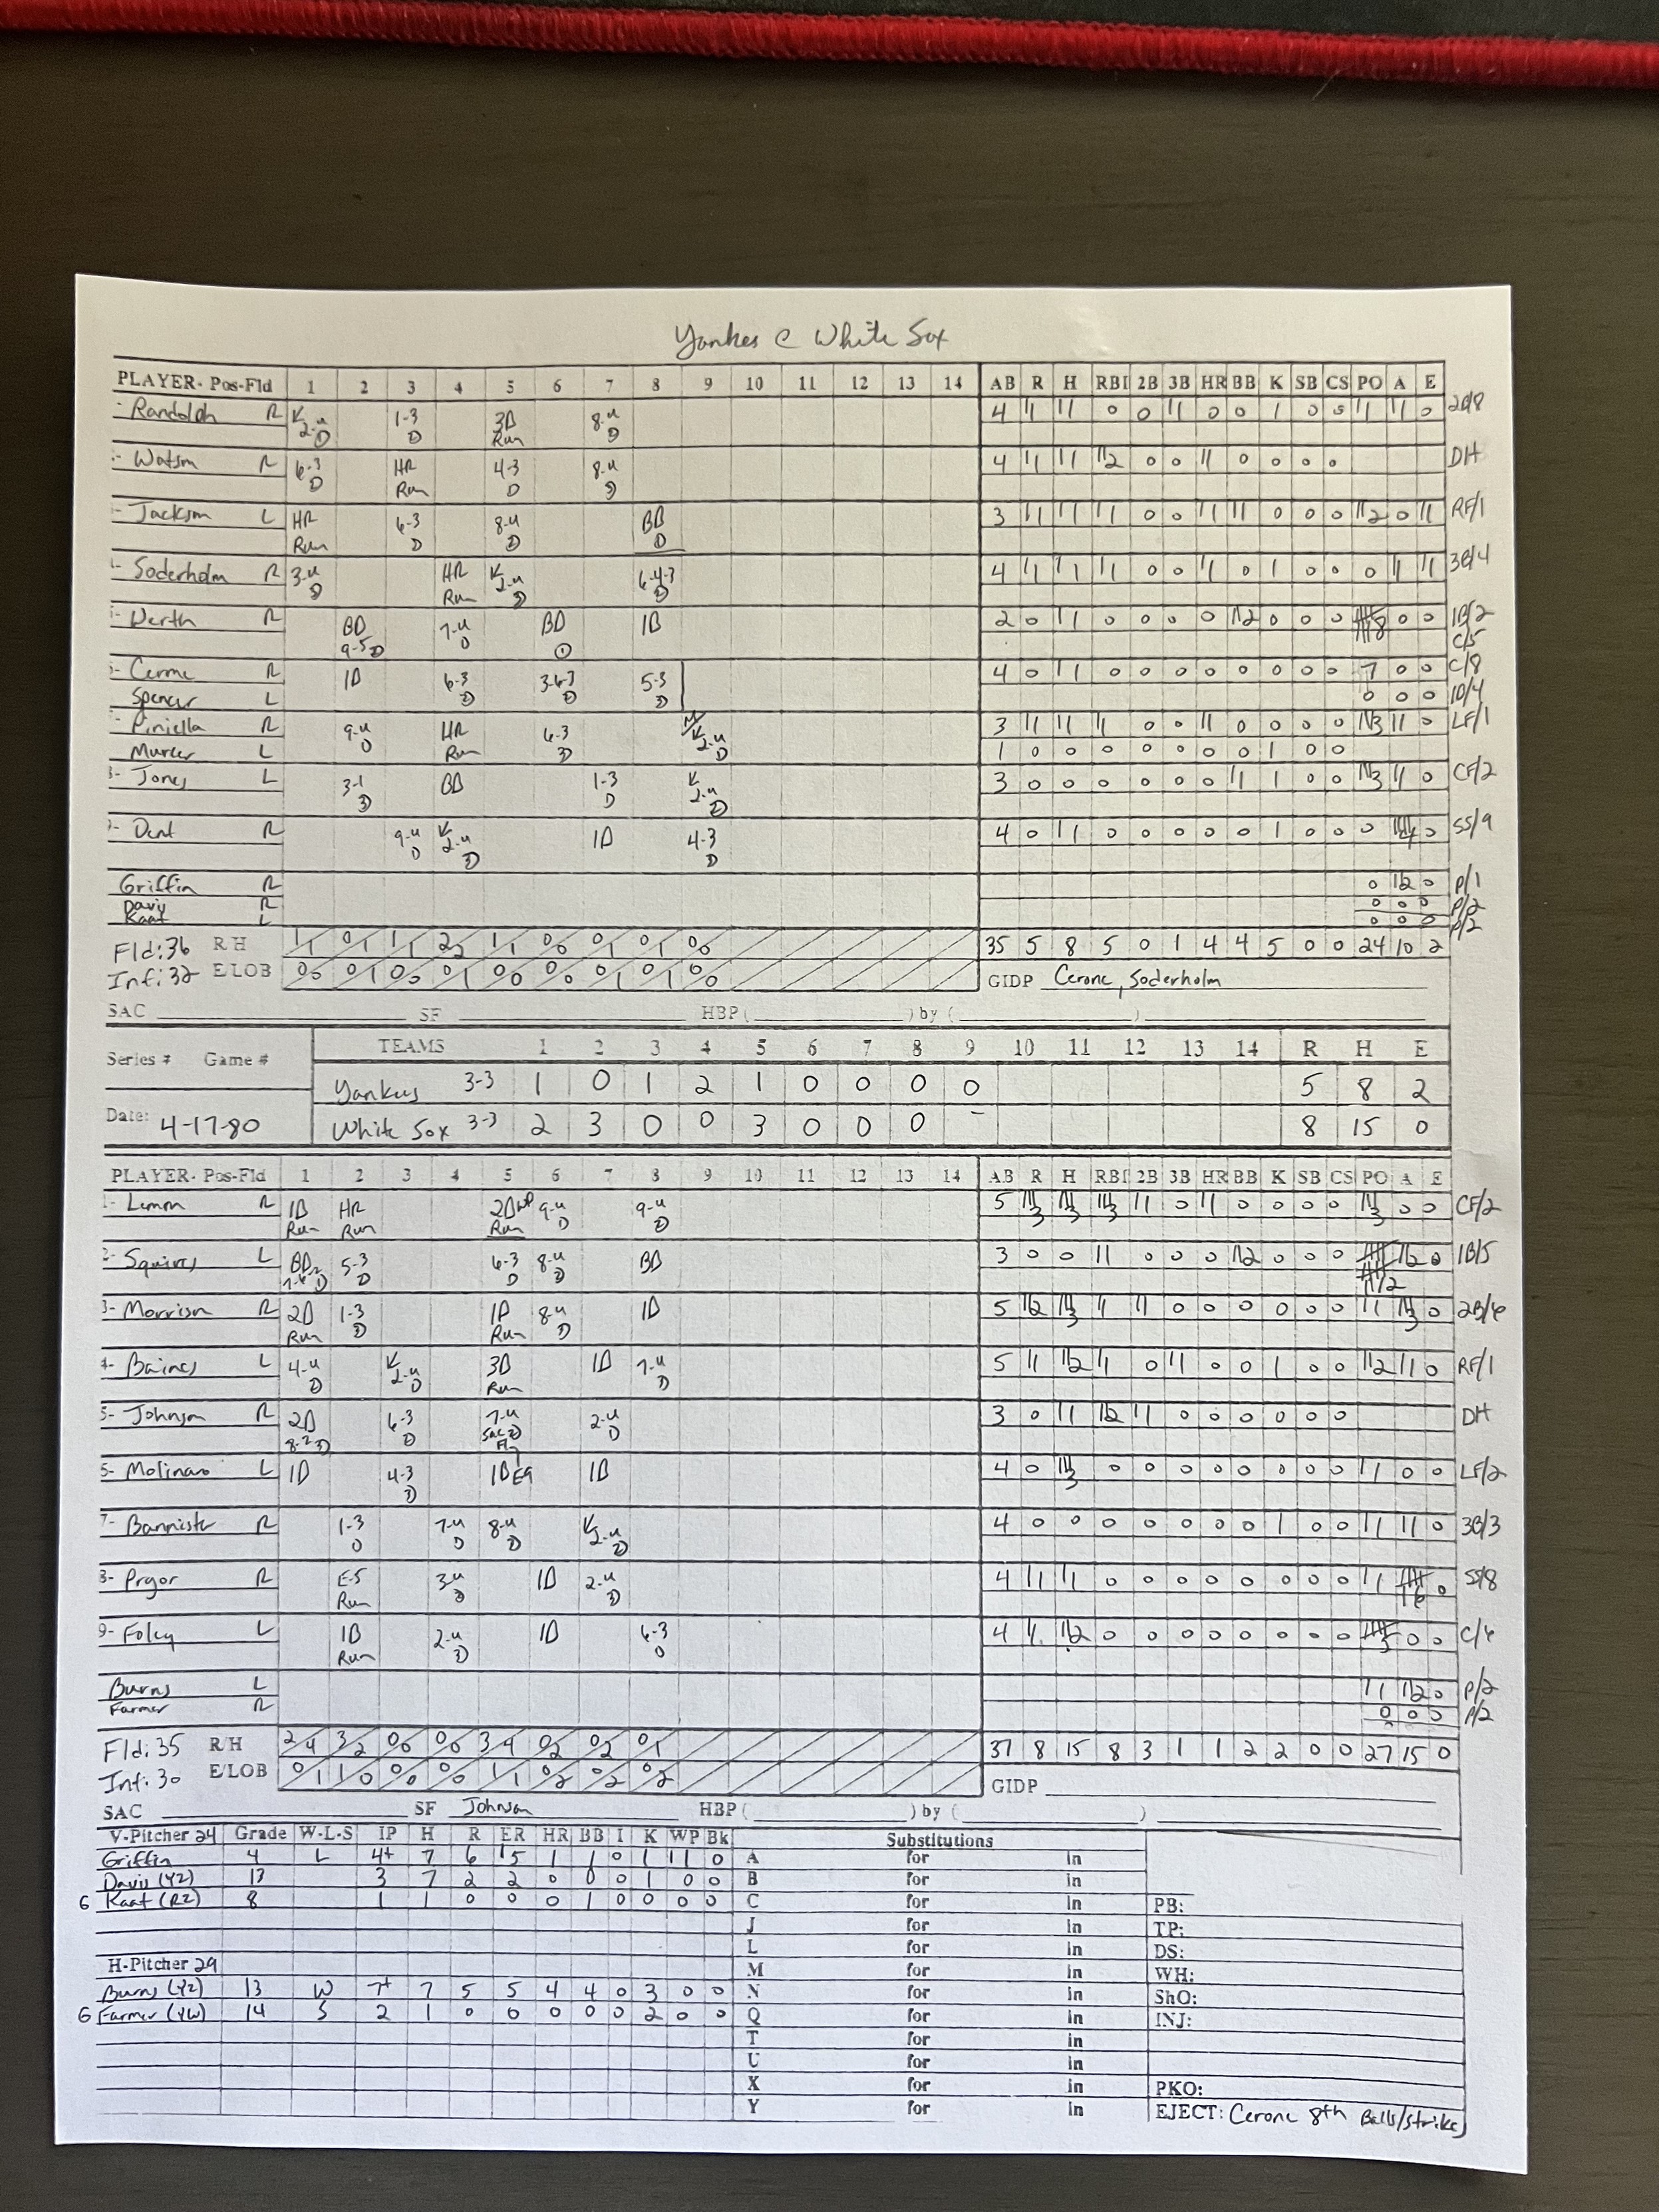 Yankes @ White Sox
PLAYER- Pos-Fld 1 2 3 4 5 6 7 8 9 10 11 12 13 14 AB R H RBI 2B 3B HR BB K SB CS PO A E
Randolph R K 2-u 1-3 3B Run 8-u 4 1 1 0 0 1 0 0 1 0 0 1 1 0 2B/8
Watson R 6-3 HR Run 4-3 8-u 4 1 1 2 0 0 1 0 0 0 0 DH
Jackson L HR Run 6-3 8-u BB 3 1 1 1 0 0 1 1 0 0 0 2 0 1 RF/1
Soderholm R 3-u HR Run K 2-u 6-4-3 4 1 1 1 0 0 1 0 1 0 0 0 1 1 3B/4
Werth R BB 9-5 7-u BB 1B 2 0 1 0 0 0 0 2 0 0 0 8 0 0 1B/2
C/5
Cerone R 1B 6-3 3-6-3 5-3 4 0 1 0 0 0 0 0 0 0 0 7 0 0 C/8
Spencer L 0 0 0 1B/4
Piniella R 9-u HR Run 6-3 3 1 1 1 0 0 1 0 0 0 0 3 1 0 LF/1
Murcer L K 2-u 1 0 0 0 0 0 0 0 1 0 0
Jones L 3-1 BB 1-3 K 2-u 3 0 0 0 0 0 0 1 1 0 0 3 1 0 CF/2
Dent R 9-u K 2-u 1B 4-3 4 0 1 0 0 0 0 0 1 0 0 0 4 0 SS/9
Griffin R 0 2 0 P/1
Davis R 0 0 0 P/2
Kaat L 0 0 0 P/2
Fld: 36 R H 1/1 0/1 1/1 2/2 1/1 0/0 0/1 0/1 0/0 35 5 8 5 0 1 4 4 5 0 0 24 10 2
Inf: 32 E/LOB 0/0 0/1 0/0 0/1 0/0 0/0 0/1 0/1 0/0 GIDP Cerone, Soderholm
SAC SF HBP ( ) by ( )
Series # Game # TEAMS 1 2 3 4 5 6 7 8 9 10 11 12 13 14 R H E
Yankees 3-3 1 0 1 2 1 0 0 0 0 5 8 2
Date: 4-17-80 White Sox 3-3 2 3 0 0 3 0 0 0 - 8 15 0
PLAYER- Pos-Fld 1 2 3 4 5 6 7 8 9 10 11 12 13 14 AB R H RBI 2B 3B HR BB K SB CS PO A E
1- Lemon R 1B Run HR Run 2B WP Run 9-u 9-u 5 3 3 3 1 0 1 0 0 0 0 3 0 0 CF/2
2- Squires L BB 5-3 6-3 8-u BB 3 0 0 1 0 0 0 2 0 0 0 12 2 0 1B/5
3- Morrison R 2B Run 1-3 1B Run 8-u 1B 5 2 3 1 1 0 0 0 0 0 0 1 3 0 2B/6
4- Baines L 4-u K 2-u 3B Run 1B 7-u 5 1 2 1 0 1 0 0 1 0 0 2 1 0 RF/1
5- Johnson R 2B 8-2 6-3 7-u Sac Fly 2-u 3 0 1 2 1 0 0 0 0 0 0 DH
Molinaro L 1B 4-3 1B E9 1B 4 0 3 0 0 0 0 0 0 0 0 1 0 0 LF/2
7- Bannister R 1-3 7-u 8-u K 2-u 4 0 0 0 0 0 0 0 1 0 0 1 1 0 3B/3
Pryor R E-5 Run 3-u 1B 2-u 4 1 1 0 0 0 0 0 0 0 0 1 6 0 SS/8
9- Foley L 1B Run 2-u 1B 6-3 4 1 2 0 0 0 0 0 0 0 0 5 0 0 C/6
Burns L 1 2 0 P/2
Farmer R 0 0 0 P/2
Fld: 35 R/H 2/4 3/2 0/0 0/0 3/4 0/2 0/2 0/1 37 8 15 8 3 1 1 2 2 0 0 27 15 0
Inf: 30 E/LOB 0/1 1/0 0/0 0/0 1/1 0/2 0/2 0/2 GIDP
SAC SF Johnson HBP ( ) by ( )
V-Pitcher 24 Grade W-L-S IP H R ER HR BB I K WP Bk Substitutions
Griffin 4 L 4+ 7 6 5 1 1 0 1 1 0 A for in
Davis (YZ) 13 3 7 2 2 0 0 0 1 0 0 B for in
6 Kaat (RZ) 8 1 1 0 0 0 1 0 0 0 0 C for in PB:
J for in TP:
L for in DS:
H-Pitcher 29 M for in WH:
Burns (YZ) 13 W 7+ 7 5 5 4 4 0 3 0 0 N for in ShO:
6 Farmer (YW) 14 S 2 1 0 0 0 0 0 2 0 0 Q for in INJ:
T for in
U for in
X for in PKO:
Y for in EJECT: Cerone 8th Balls/Strikes